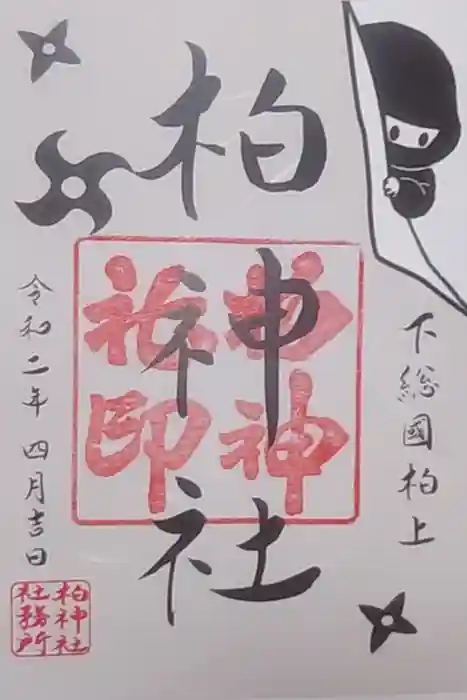 下総國柏上
柏神社
柏神
社印
令和二年 四月吉日
柏神社
社務所